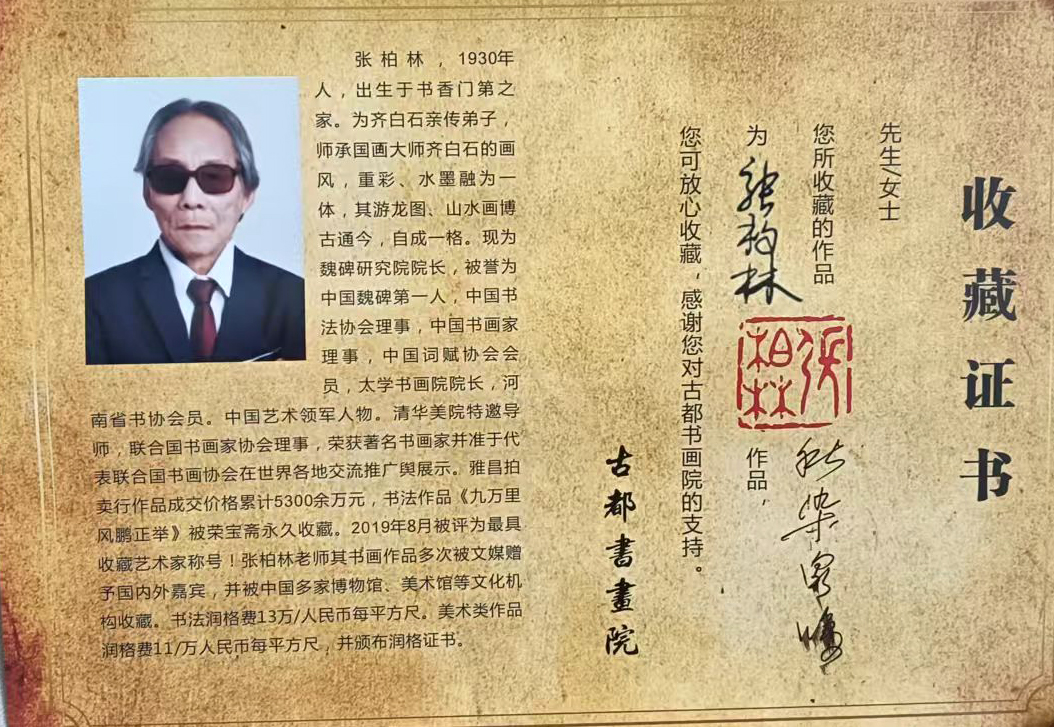 收藏证书
先生/女士
您所收藏的作品
为张柏林
张柏林
作品，
您可放心收藏，感谢您对古都书画院的支持。
古都書畫院
张柏林，1930年
人，出生于书香门第之
家。为齐白石亲传弟子，
师承国画大师齐白石的画
风，重彩、水墨融为一
体，其游龙图、山水画博
古通今，自成一格。现为
魏碑研究院院长，被誉为
中国魏碑第一人，中国书
法协会理事，中国书画家
理事，中国词赋协会会
员，太学书画院院长，河
南省书协会员。中国艺术领军人物。清华美院特邀导
师，联合国书画家协会理事，荣获著名书画家并准于代
表联合国书画协会在世界各地交流推广舆展示。雅昌拍
卖行作品成交价格累计5300余万元，书法作品《九万里
风鹏正举》被荣宝斋永久收藏。2019年8月被评为最具
收藏艺术家称号！张柏林老师其书画作品多次被文媒赠
予国内外嘉宾，并被中国多家博物馆、美术馆等文化机
构收藏。书法润格费13万/人民币每平方尺。美术类作品
润格费11/万人民币每平方尺，并颁布润格证书。